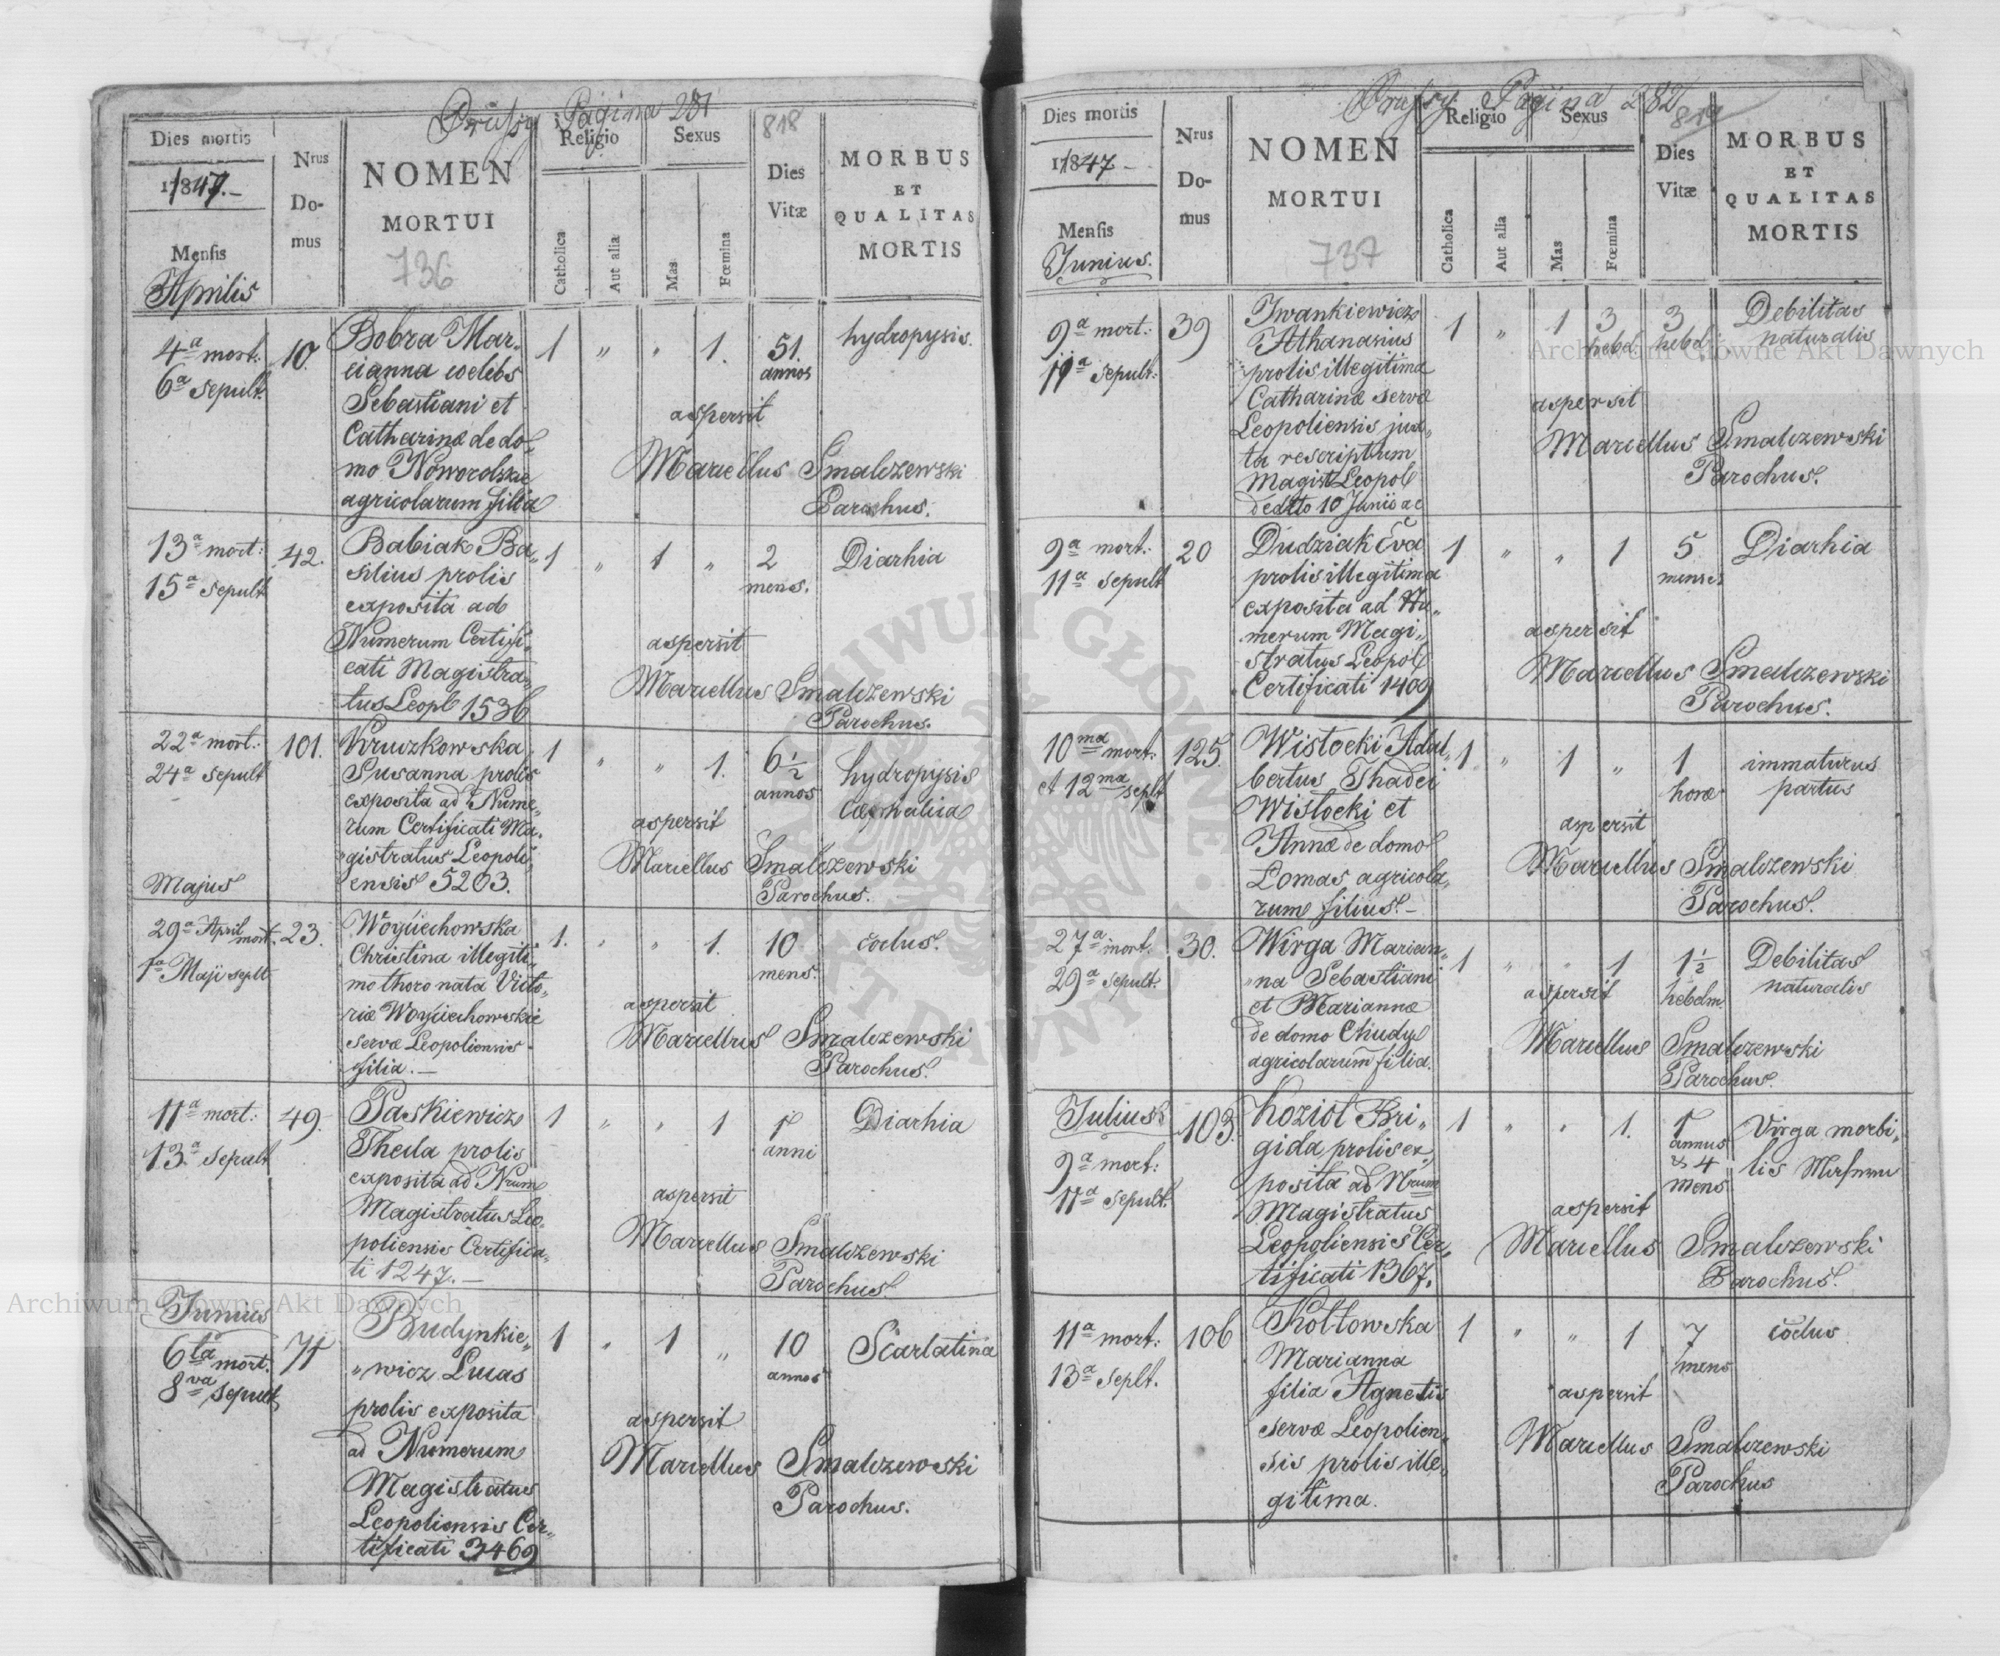 Prussy Pagina 281
818
Dies mortis
1847.-
Mensis
Aprilis
Nrus
Do-
mus
NOMEN
MORTUI
736
Religio
Catholica
Aut alia
Sexus
Mas
Fœmina
Dies
Vitæ
MORBUS
ET
QUALITAS
MORTIS
4a mort.
6a sepult.
10.
Bobra Mar-
cianna coelebs
Sebastiani et
Catharinæ de do-
mo Noworolskie
agricolarum filia
1 " " 1.
51.
annos
hydropysis.
aspersit
Marcellus Smalczewski
Parochus.
13a mort:
15a sepult
42.
Babiak Ba-
silius prolis
exposita ad
Numerum Certifi-
cati Magistra-
tus Leopl 1536
1 " 1 "
2
mens.
Diarhia
aspersit
Marcellus Smalczewski
Parochus.
22a mort:
24a sepult
101.
Kruczkowska
Susanna prolis
exposita ad Nume-
rum Certificati Ma-
gistratus Leopoli-
ensis 5203.
1 " " 1.
6 1/2
annos
hydropysis
cephalica
aspersit
Marcellus Smalczewski
Parochus.
Majus
29a April mort.
1a Maji seplt
23.
Woyciechowska
Christina illegiti-
mo thoro nata Victo-
riæ Woyciechowskie
servæ Leopoliensis
filia. —
1. " " 1.
10
mens.
codus.
aspersit
Marcellus Smalczewski
Parochus.
11a mort:
13a Sepult
49.
Paskiewicz
Thecla prolis
exposita ad Nrum
Magistratus Leo-
poliensis Certifica-
ti 1247. —
1 " " 1
1
anni
Diarhia
aspersit
Marcellus Smalczewski
Parochus.
Junius
6ta mort.
8va sepult
71
Budynkie-
"wicz Lucas
prolis exposita
ad Numerum
Magistratus
Leopoliensis Cer-
tificati 3469
1 " 1 "
10
annos
Scarlatina
aspersit
Marcellus Smalczewski
Parochus.
Prussy Pagina 282
819
Dies mortis
1847.-
Mensis
Junius.
Nrus
Do-
mus
NOMEN
MORTUI
737
Religio
Catholica
Aut alia
Sexus
Mas
Fœmina
Dies
Vitæ
MORBUS
ET
QUALITAS
MORTIS
9a mort:
11a sepult:
39
Iwankiewicz
Athanasius
prolis illegitima
Catharinæ servæ
Leopoliensis jux-
ta rescriptum
Magist Leopol
ddto 10 Junii ac
1 " 1
3
hebd
3
hebd
Debilitas
naturalis
aspersit
Marcellus Smalczewski
Parochus.
9a mort:
11a sepult
20
Dudziak Eva
prolis illegitima
exposita ad Nu-
merum Magi-
stratus Leopol
Certificati 1409
1 " " 1
5
menses
Diarhia
aspersit
Marcellus Smalczewski
Parochus.
10ma mort:
et 12ma seplt
125.
Wistocki Adal-
bertus Thadei
Wistocki et
Annæ de domo
Lomas agricola-
rum filius. —
1 " 1 "
1
horæ
immaturus
partus
aspersit
Marcellus Smalczewski
Parochus.
27a mort.
29a sepult.
30.
Wirga Marian-
"na Sebastiani
et Mariannæ
de domo Chudy
agricolarum filia.
1 " " 1
1 1/2
hebdm
Debilitas
naturalis
aspersit
Marcellus Smalczewski
Parochus.
Julius
9a mort:
11a sepult.
103.
Kozioł Bri-
gida prolis ex-
posita ad Nrum
Magistratus
Leopoliensis Cer-
tificati 1367.
1 " " 1.
1
annus
& 4
mens
Virga morbi-
lis
aspersit
Marcellus Smalczewski
Parochus.
11a mort:
13a seplt.
106
Kołtowska
Marianna
filia Agnetis
servæ Leopolien-
sis prolis ille-
gitima.
1 " " 1
7
mens
codus
aspersit
Marcellus Smalczewski
Parochus
Archiwum Główne Akt Dawnych
Archiwum Główne Akt Dawnych
ARCHIWUM GŁÓWNE AKT DAWNYCH